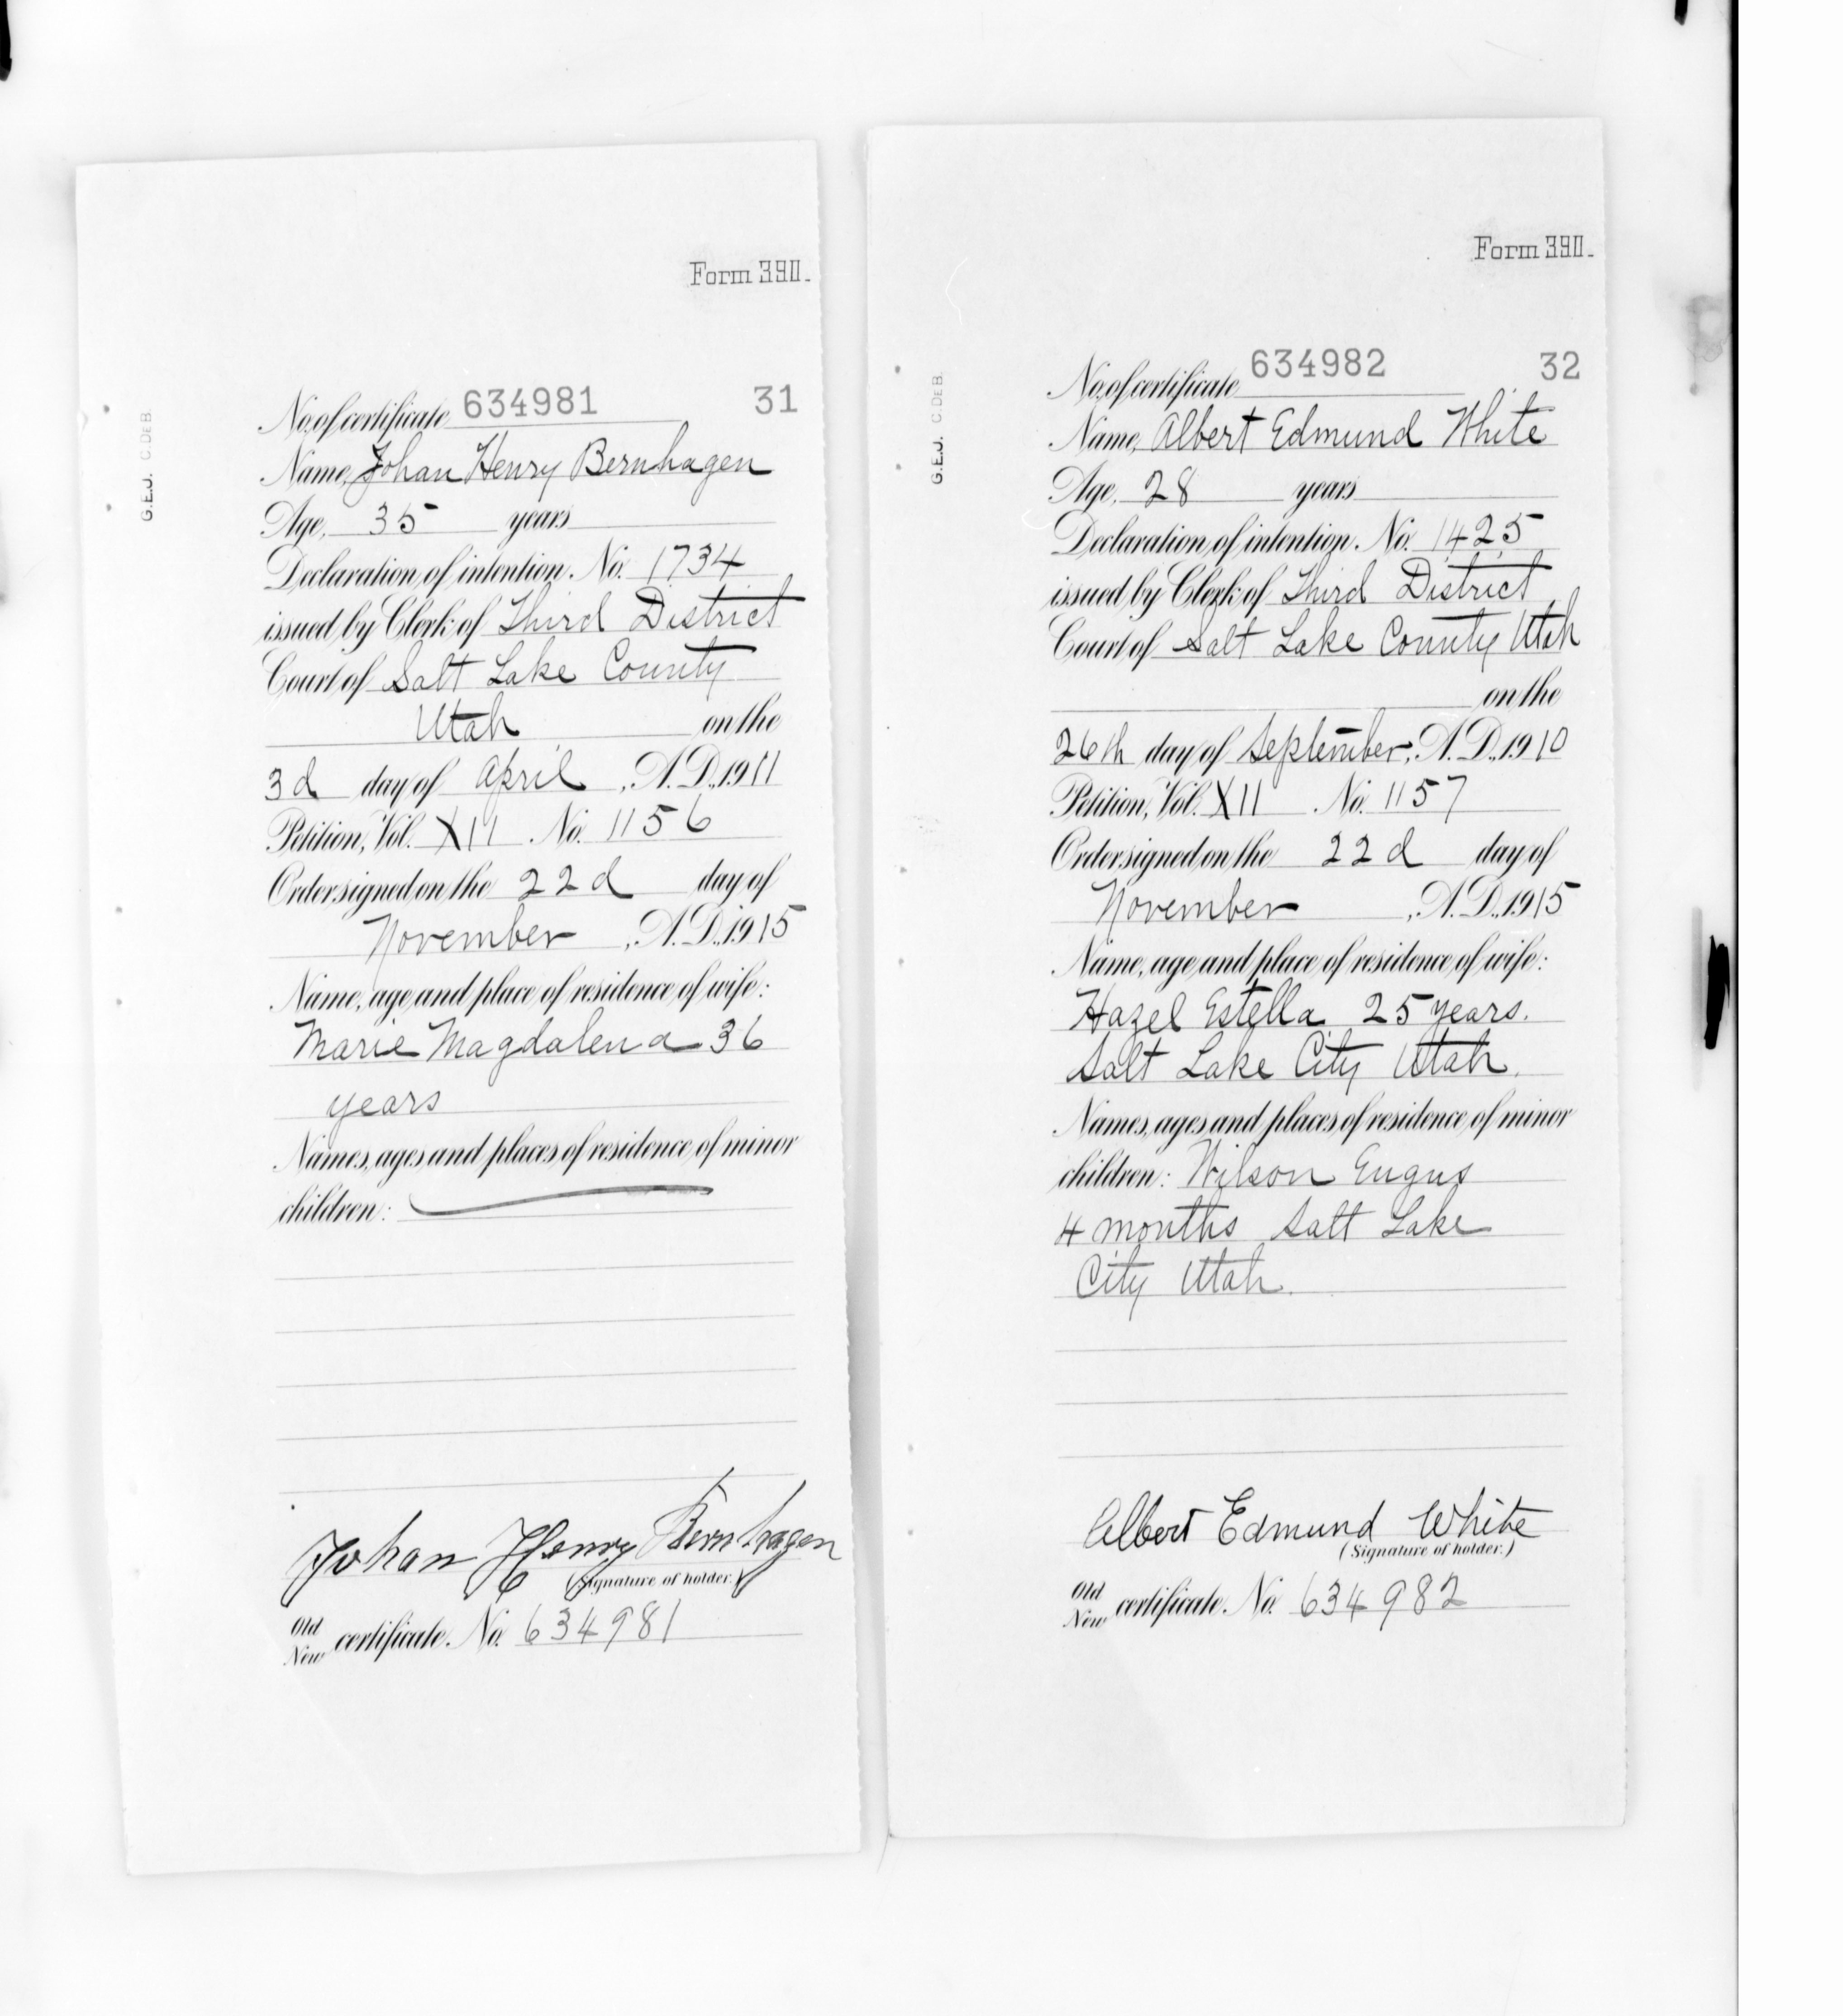 Form 390.
No. of certificate 634981 31
Name, Johan Henry Bernhagen
Age, 35 years
Declaration of intention, No. 1734
issued by Clerk of Third District
Court of Salt Lake County
Utah on the
3d day of April, A.D., 1911
Petition, Vol. XII No. 1156
Order signed on the 22d day of
November, A.D., 1915
Name, age and place of residence of wife:
Marie Magdalena 36
years
Names, ages and places of residence of minor
children:
Johan Henry Bernhagen
(Signature of holder.)
Old
New certificate. No. 634981
G.E.J. C. DE B.
Form 390.
No. of certificate 634982 32
Name, Albert Edmund White
Age, 28 years
Declaration of intention, No. 1425
issued by Clerk of Third District
Court of Salt Lake County Utah
on the
26th day of September, A.D., 1910
Petition, Vol. XII No. 1157
Order signed on the 22d day of
November, A.D., 1915
Name, age and place of residence of wife:
Hazel Estella 25 years.
Salt Lake City Utah.
Names, ages and places of residence of minor
children: Wilson
4 months Salt Lake
City Utah.
Albert Edmund White
(Signature of holder.)
Old
New certificate. No. 634982
G.E.J. C. DE B.